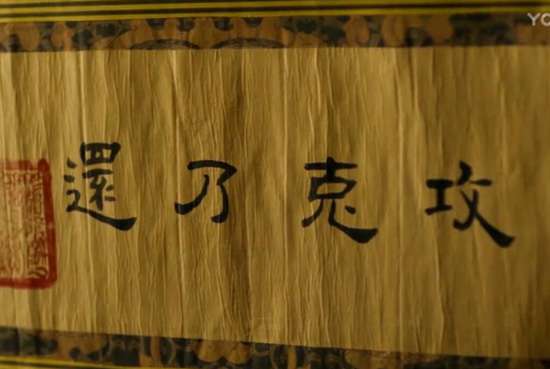 攻克乃還
YO